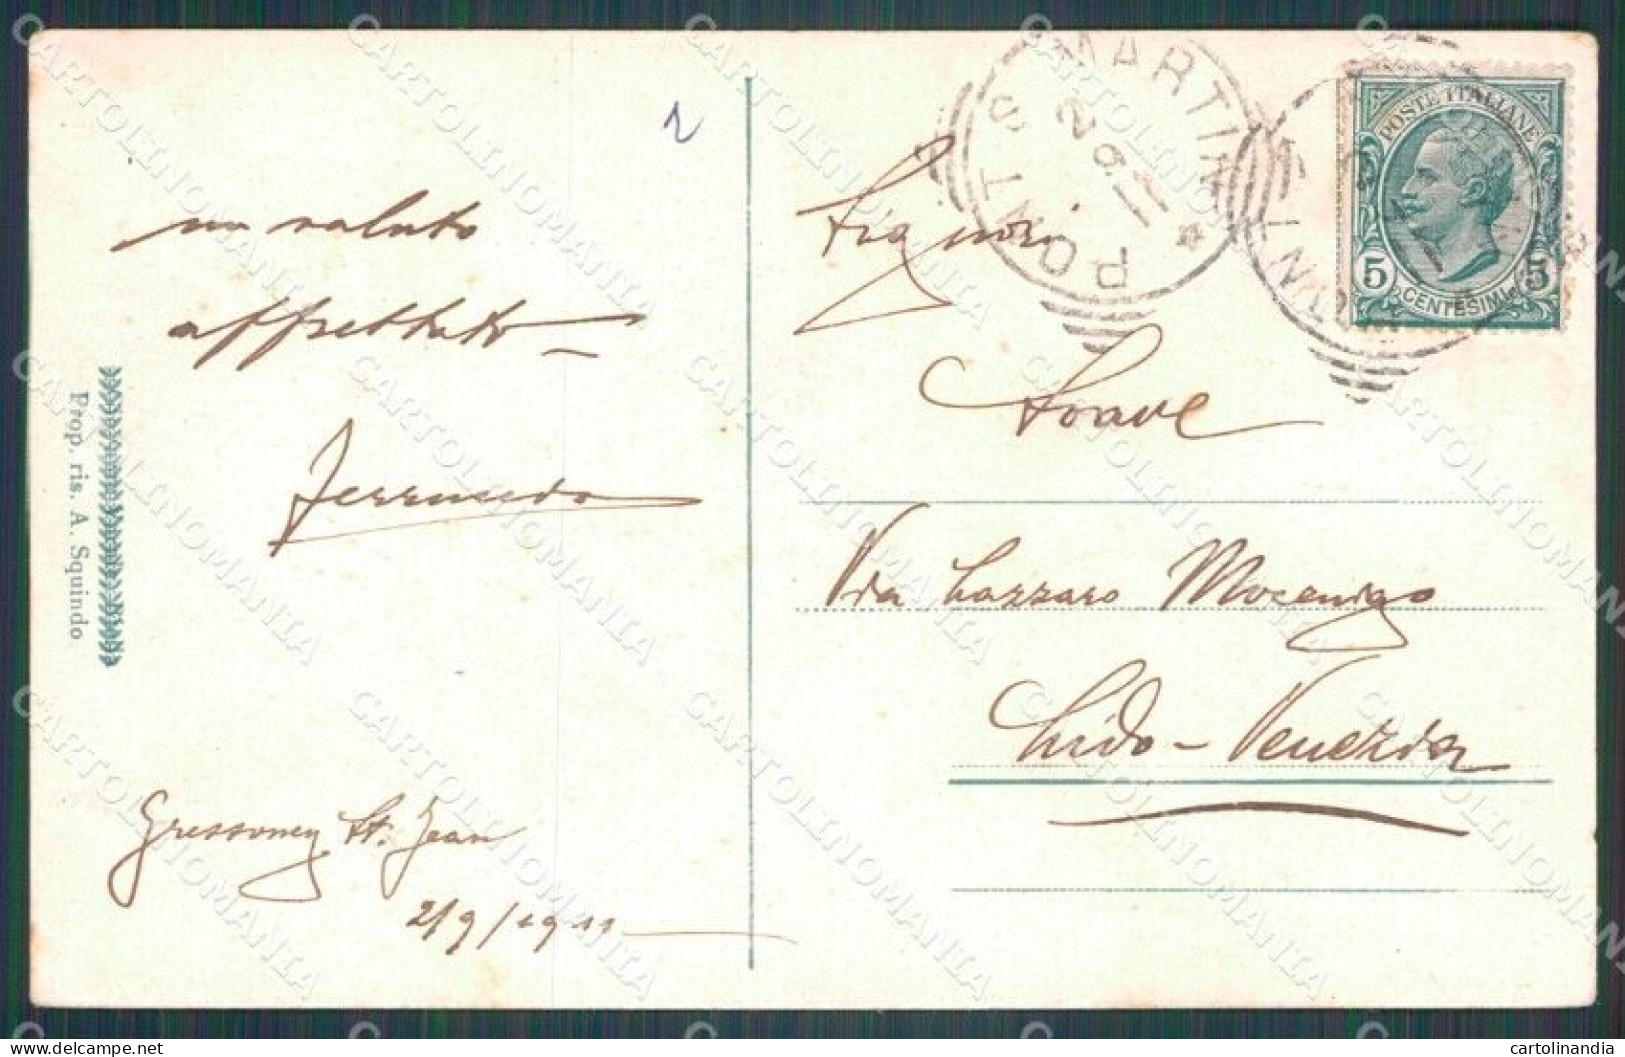 2
un saluto
affettuoso
Prop. ris. A. Squindo
Gressoney St. Jean
2/9/1911
PONT S MARTIN
2 9 11
POSTE ITALIANE
5 CENTESIMI 5
Signori
Soave
Via Lazzaro Mocenigo
Lido - Venezia
CARTOLINOMANIA
www.delcampe.net
cartolinandia